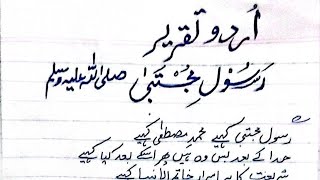 اُردو تقریر
رَسُولِ مُجْتَبیٰ صلی اللہ علیہ وسلم
رسول مجتبیٰ کہیے محمدِ مصطفیٰ کہیے
خدا کے بعد بس وہ ہیں پھر اسکے بعد کیا کہیے
شریعت کا ہے اصرار خاتم الانبیا کہیے